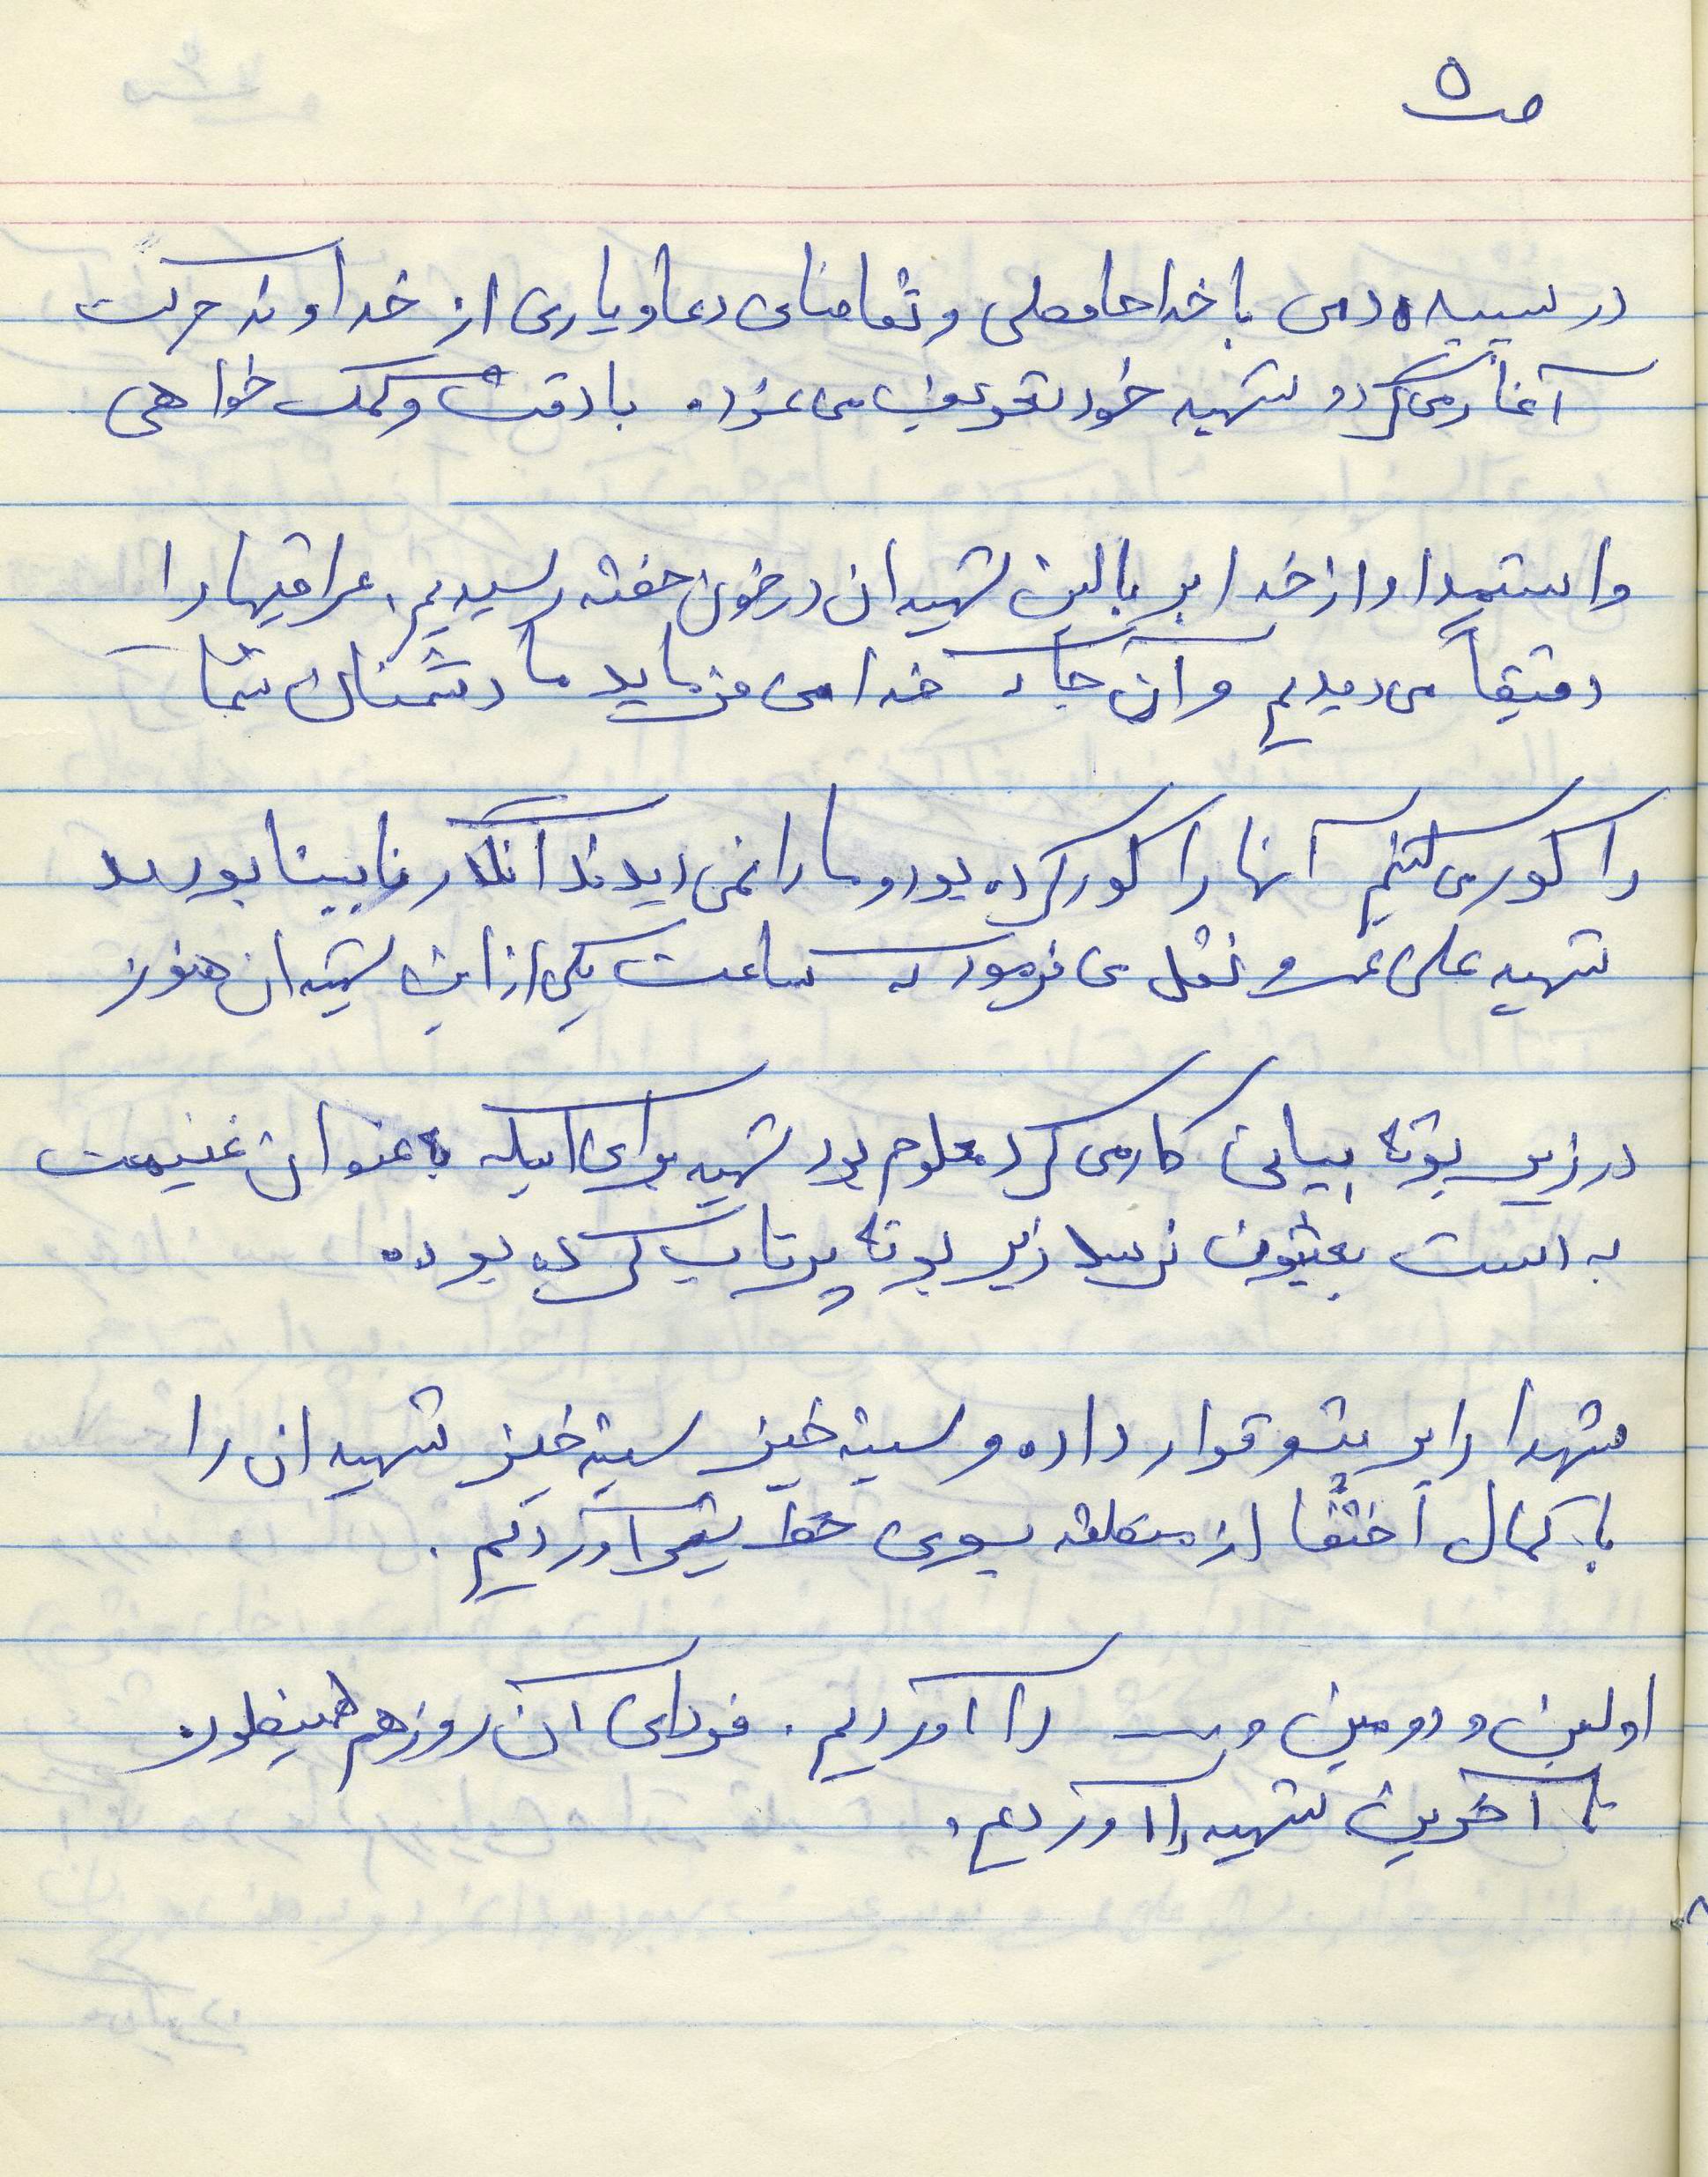 ص ۵
در سپیده دمی با خداحافظی و تقاضای دعا و یاری از خداوند حرکت
آغاز می کرد و شهید خود تعریف می نموده با دقت و کمک خواهی
و استمداد از خدا بر بالین شهیدان در خون خفته رسیدیم. عراقیها را
دقیقاً می دیدیم و آن جا که خدا می فرماید ما دشمنان شما
را کور می کنیم آنها را کور کرده بود و ما را نمی دیدند انگار نابینا بودند
شهید علی نقل می فرمود که ساعت یکی از این شهیدان هنوز
در زیر بوته بیابان کار می کرد معلوم بود شهید برای اینکه به عنوان غنیمت
به دست بعثیون نرسد زیر بوته پرتاب کرده بوده
شهدا را بر پتو قرار داده و سینه خیز سینه خیز شهیدان را
با کمال اختفا از منطقه بسوی خط آوردیم.
اولین و دومین را آوردیم. فردای آن روز هم همینطور
تا آخرین شهید را آوردیم.